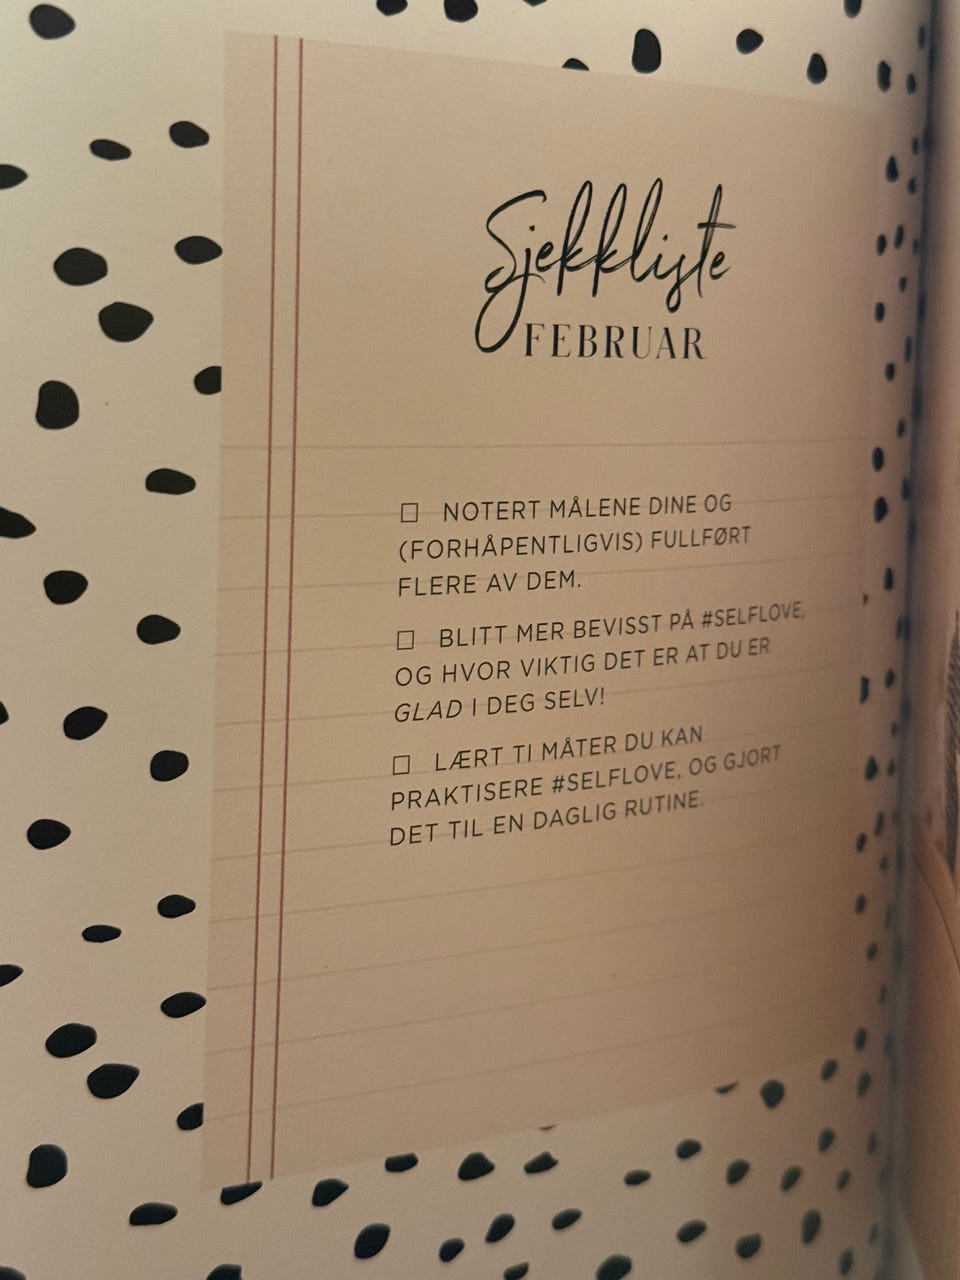 Sjekkliste
FEBRUAR
☐ NOTERT MÅLENE DINE OG
(FORHÅPENTLIGVIS) FULLFØRT
FLERE AV DEM.
☐ BLITT MER BEVISST PÅ #SELFLOVE,
OG HVOR VIKTIG DET ER AT DU ER
GLAD I DEG SELV!
☐ LÆRT TI MÅTER DU KAN
PRAKTISERE #SELFLOVE, OG GJORT
DET TIL EN DAGLIG RUTINE.